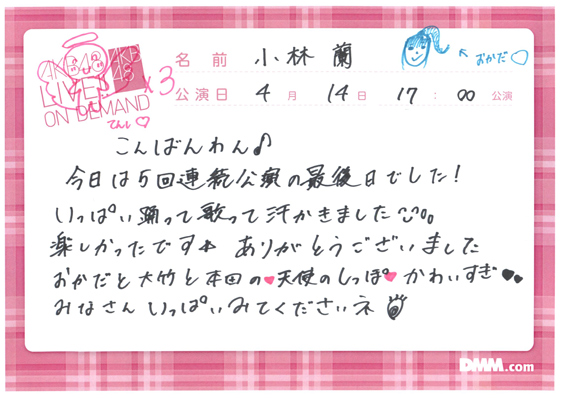 名前 小林 蘭
←おかだ♡
AKB48
LIVE!!
ON DEMAND
×3
てんし♡
公演日 4月 14日 17:00 公演
こんばんわん♪
今日は5回連続公演の最後日でした!
いっぱい踊って歌って汗かきました
楽しかったです★ ありがとうございました
おかだと大竹と本田の♥天使のしっぽ♥かわいすぎ♥♥
みなさんいっぱいみてくださいネ
DMM.com